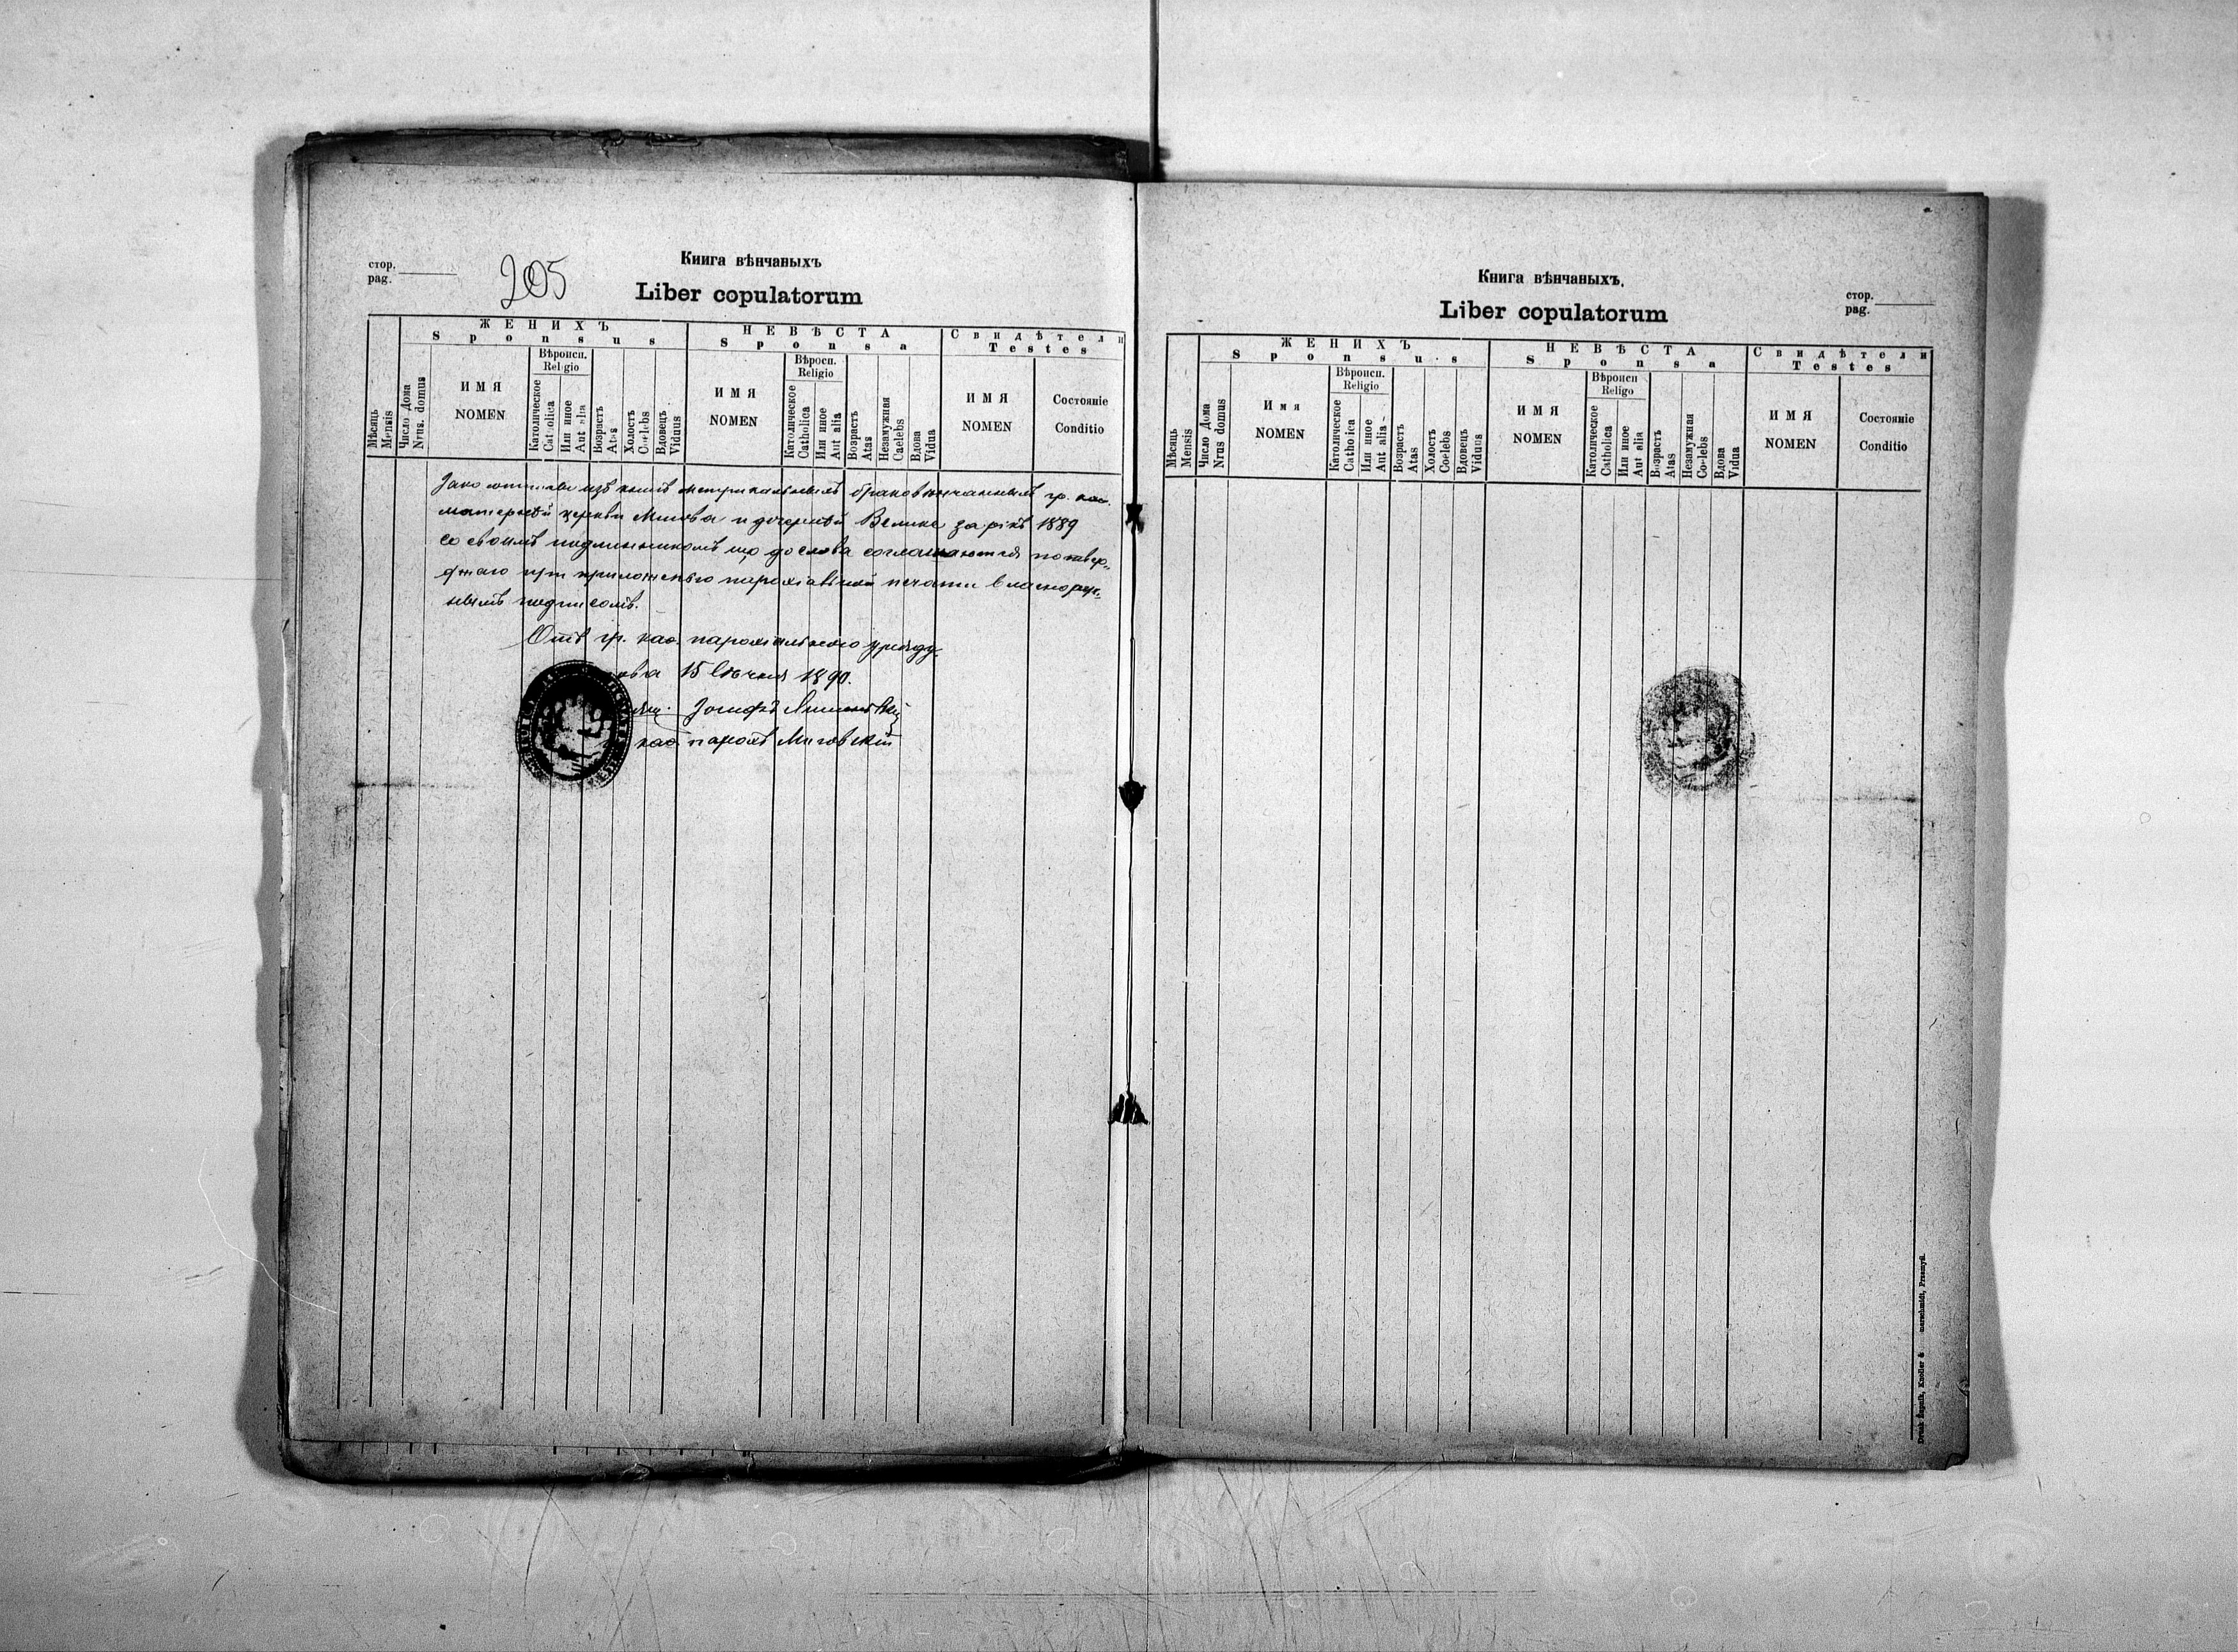 стор.
pag.
205
Книга вѣнчаныхъ
Liber copulatorum
Мѣсяць
Mensis
Число Дома
Nrus. domus
ЖЕНИХЪ
Sponsus
ИМЯ
NOMEN
Вѣроисп.
Religio
Католическое
Catholica
Или иное
Aut alia
Возрастъ
Atas
Холостъ
Coelebs
Вдовець
Viduus
НЕВѢСТА
Sponsa
ИМЯ
NOMEN
Вѣросп.
Religio
Католическое
Catholica
Или иное
Aut alia
Возрастъ
Atas
Незамужная
Caelebs
Вдова
Vidua
Свидѣтели
Testes
ИМЯ
NOMEN
Состояніе
Conditio
Яко изъ книгъ метрикальныхъ браковѣнчанныхъ гр. као.
матерной церкви и дочерной Велике за рікъ 1889
со своимъ подлинникомъ що до слова соглашаются потвер-
джаю при приложенью парохіяльной печати власноруч-
нымъ подписомъ.
Отъ гр. као. парохіяльного уряду.
15 Січня 1890.
Іосифъ
као. парохъ
Книга вѣнчаныхъ.
Liber copulatorum
стор.
pag.
Мѣсяць
Mensis
Число Дома
Nrus domus
ЖЕНИХЪ
Sponsus
Имя
NOMEN
Вѣроисп.
Religio
Католическое
Catholica
Или иное
Aut alia
Возрастъ
Atas
Холостъ
Coelebs
Вдовецъ
Viduus
НЕВѢСТА
Sponsa
ИМЯ
NOMEN
Вѣроисп
Religo
Католическое
Catholica
Или иное
Aut alia
Возрастъ
Atas
Незамужная
Coelebs
Вдова
Vidua
Свидѣтели
Testes
ИМЯ
NOMEN
Состояніе
Conditio
Druk Żupnik, Knoller & Przemyśl.